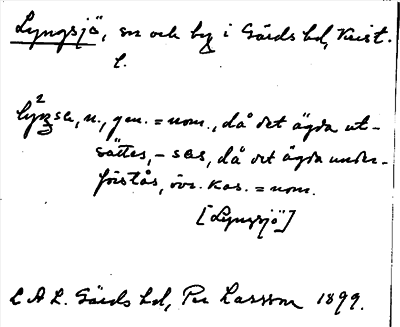 Lyngsjö, sn och by i Gärds hd, Krist.
l.
lyŋsa, n., gen. = nom., då det ägda ut-
sättes, -sas, då det ägda under-
förstås, övr. kas. = nom.
[Lyngsjö]
L A L. Gärds hd, Per Larsson 1899.